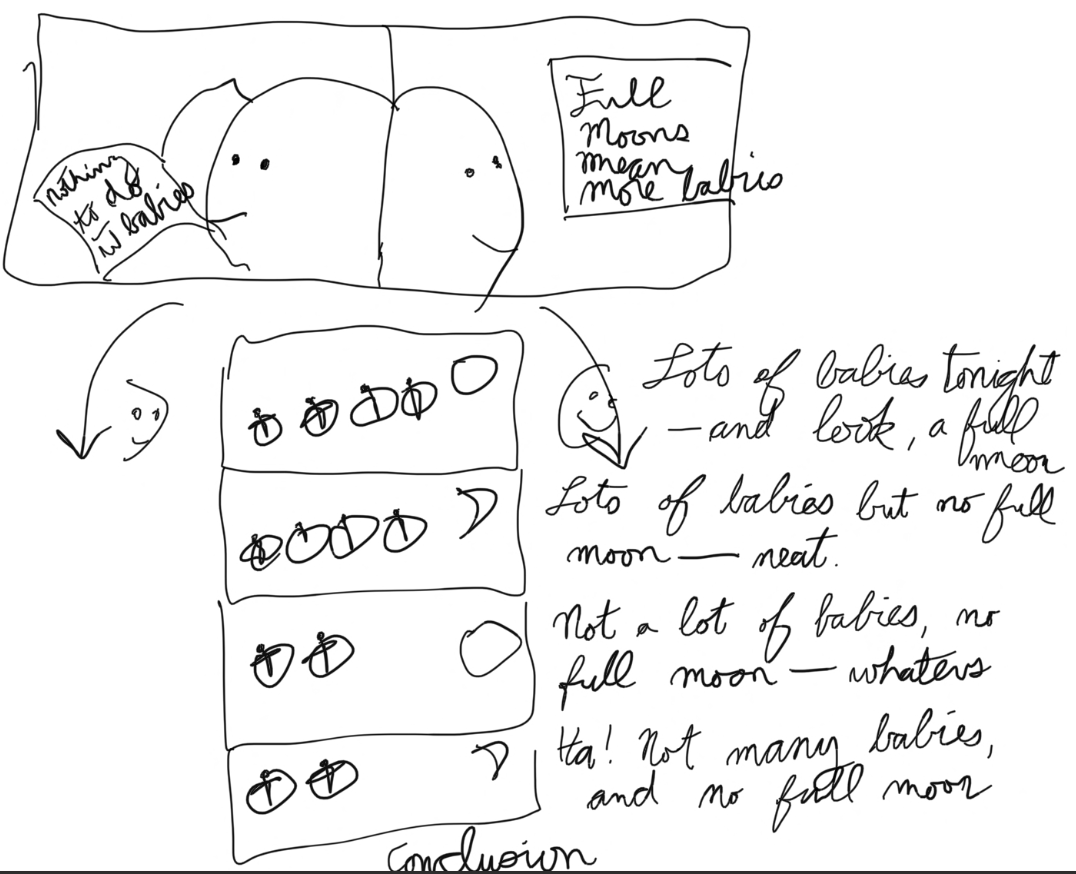 nothing
to do
w̅ babies
Full
Moons
mean
more babies
Lots of babies tonight
—and look, a full
moon
Lots of babies but no full
moon — neat.
Not a lot of babies, no
full moon — whatevs
Ha! Not many babies,
and no full moon
Conclusion